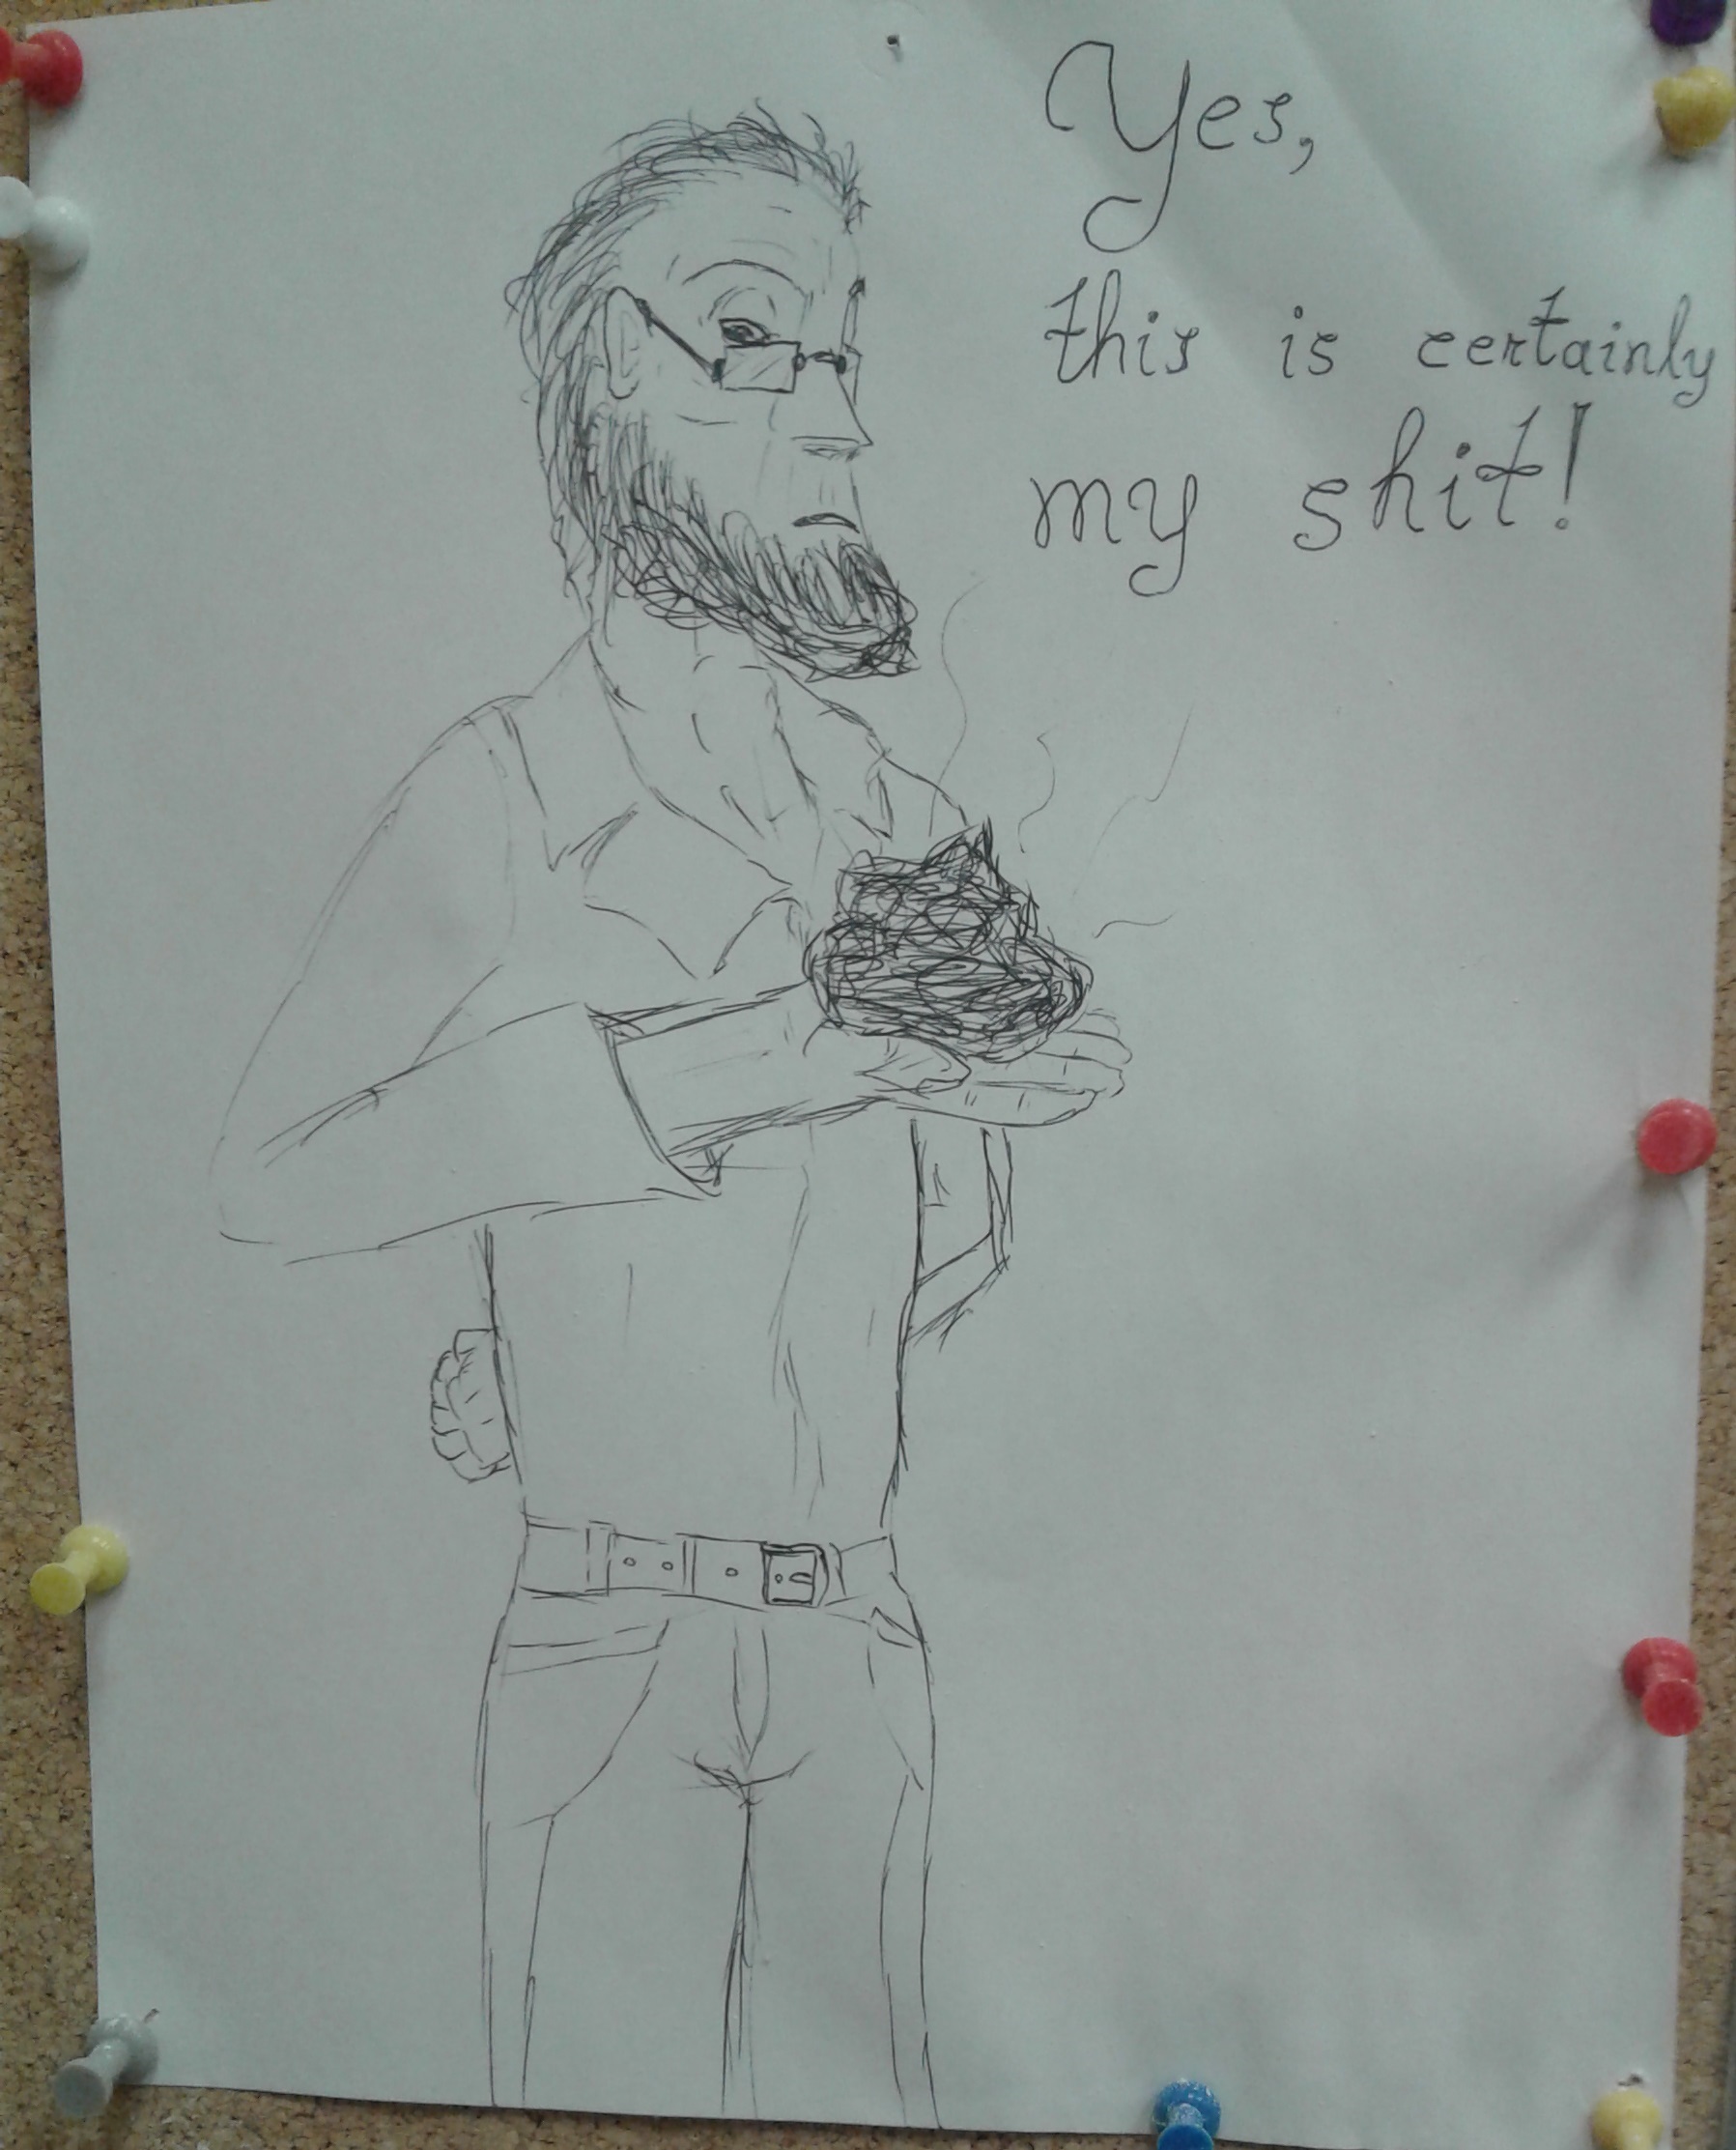 Yes,
this is certainly
my shit!